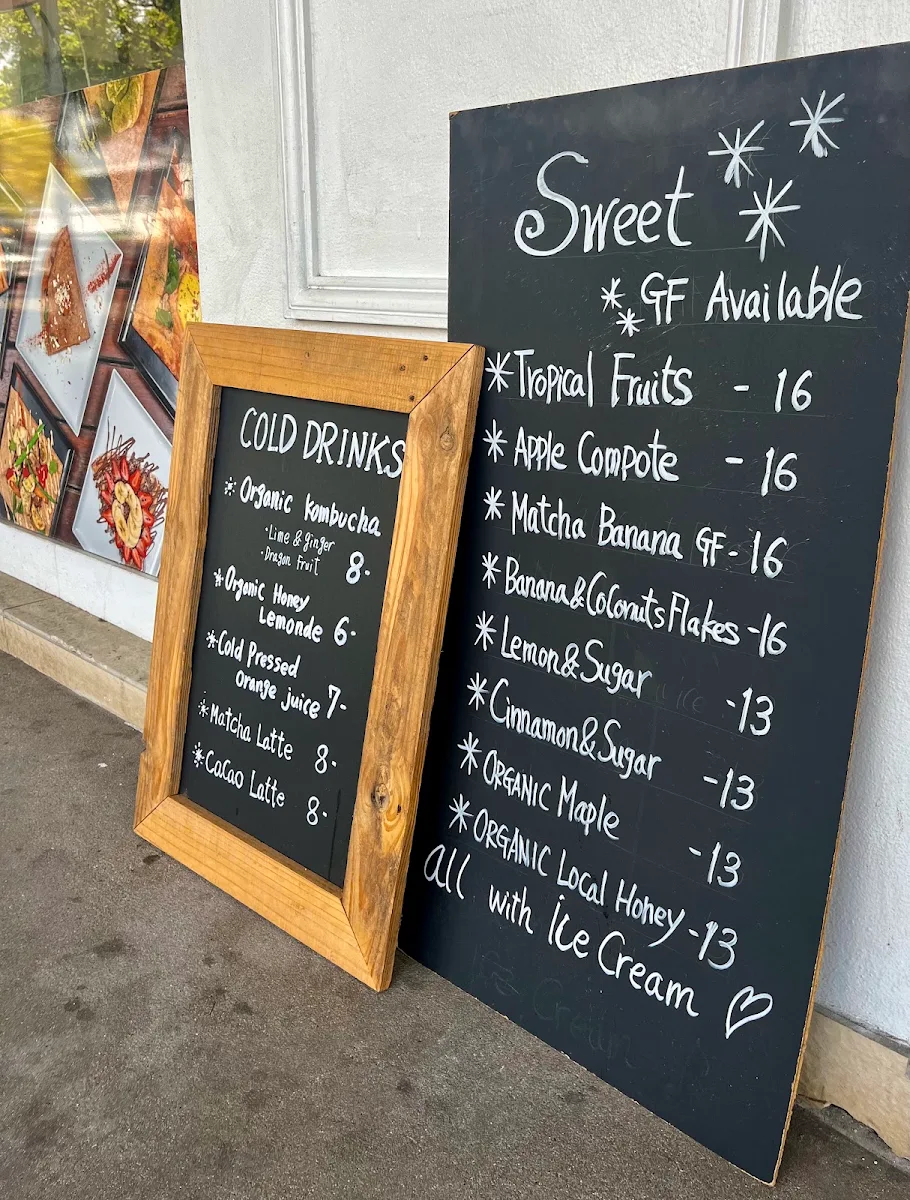 COLD DRINKS
Organic Kombucha
·Lime & ginger
·Dragon Fruit 8-
Organic Honey
Lemonde 6-
Cold Pressed
Orange juice 7-
Matcha Latte 8-
CaCao Latte 8-
Sweet
GF Available
Tropical Fruits - 16
Apple Compote - 16
Matcha Banana GF - 16
Banana & CoConuts Flakes - 16
Lemon & Sugar - 13
Cinnamon & Sugar - 13
ORGANIC Maple - 13
ORGANIC Local Honey - 13
all with Ice Cream